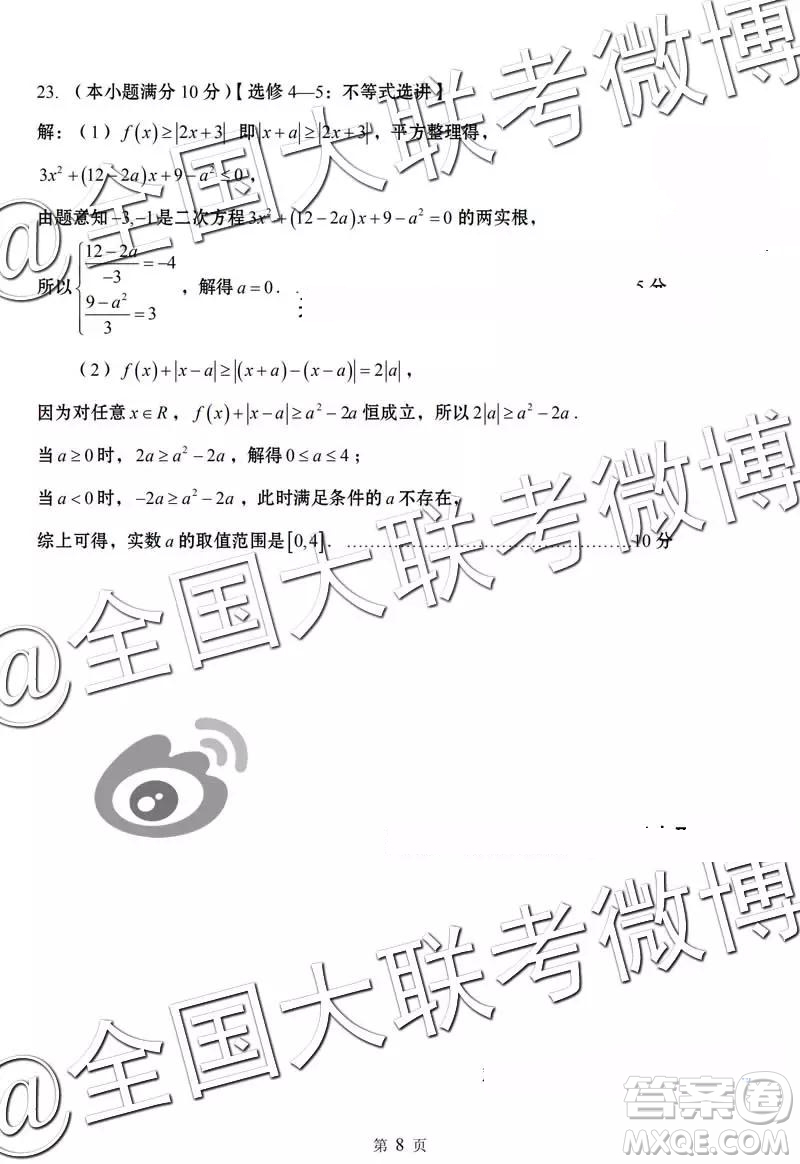 23. （本小题满分10分）【选修4—5：不等式选讲】
解：（1）f(x)≥|2x+3| 即|x+a|≥|2x+3|，平方整理得，
3x²+(12-2a)x+9-a²≤0，
由题意知-3,-1是二次方程3x²+(12-2a)x+9-a²=0的两实根，
所以{(12-2a)/(-3)=-4，(9-a²)/3=3，解得a=0．5分
（2）f(x)+|x-a|≥|(x+a)-(x-a)|=2|a|，
因为对任意x∈R，f(x)+|x-a|≥a²-2a恒成立，所以2|a|≥a²-2a．
当a≥0时，2a≥a²-2a，解得0≤a≤4；
当a<0时，-2a≥a²-2a，此时满足条件的a不存在，
综上可得，实数a的取值范围是[0,4]．……………………………10分
@全国大联考微博
@全国大联考微博
@全国大联考微博
答案圈
MXQE.COM
第 8 页